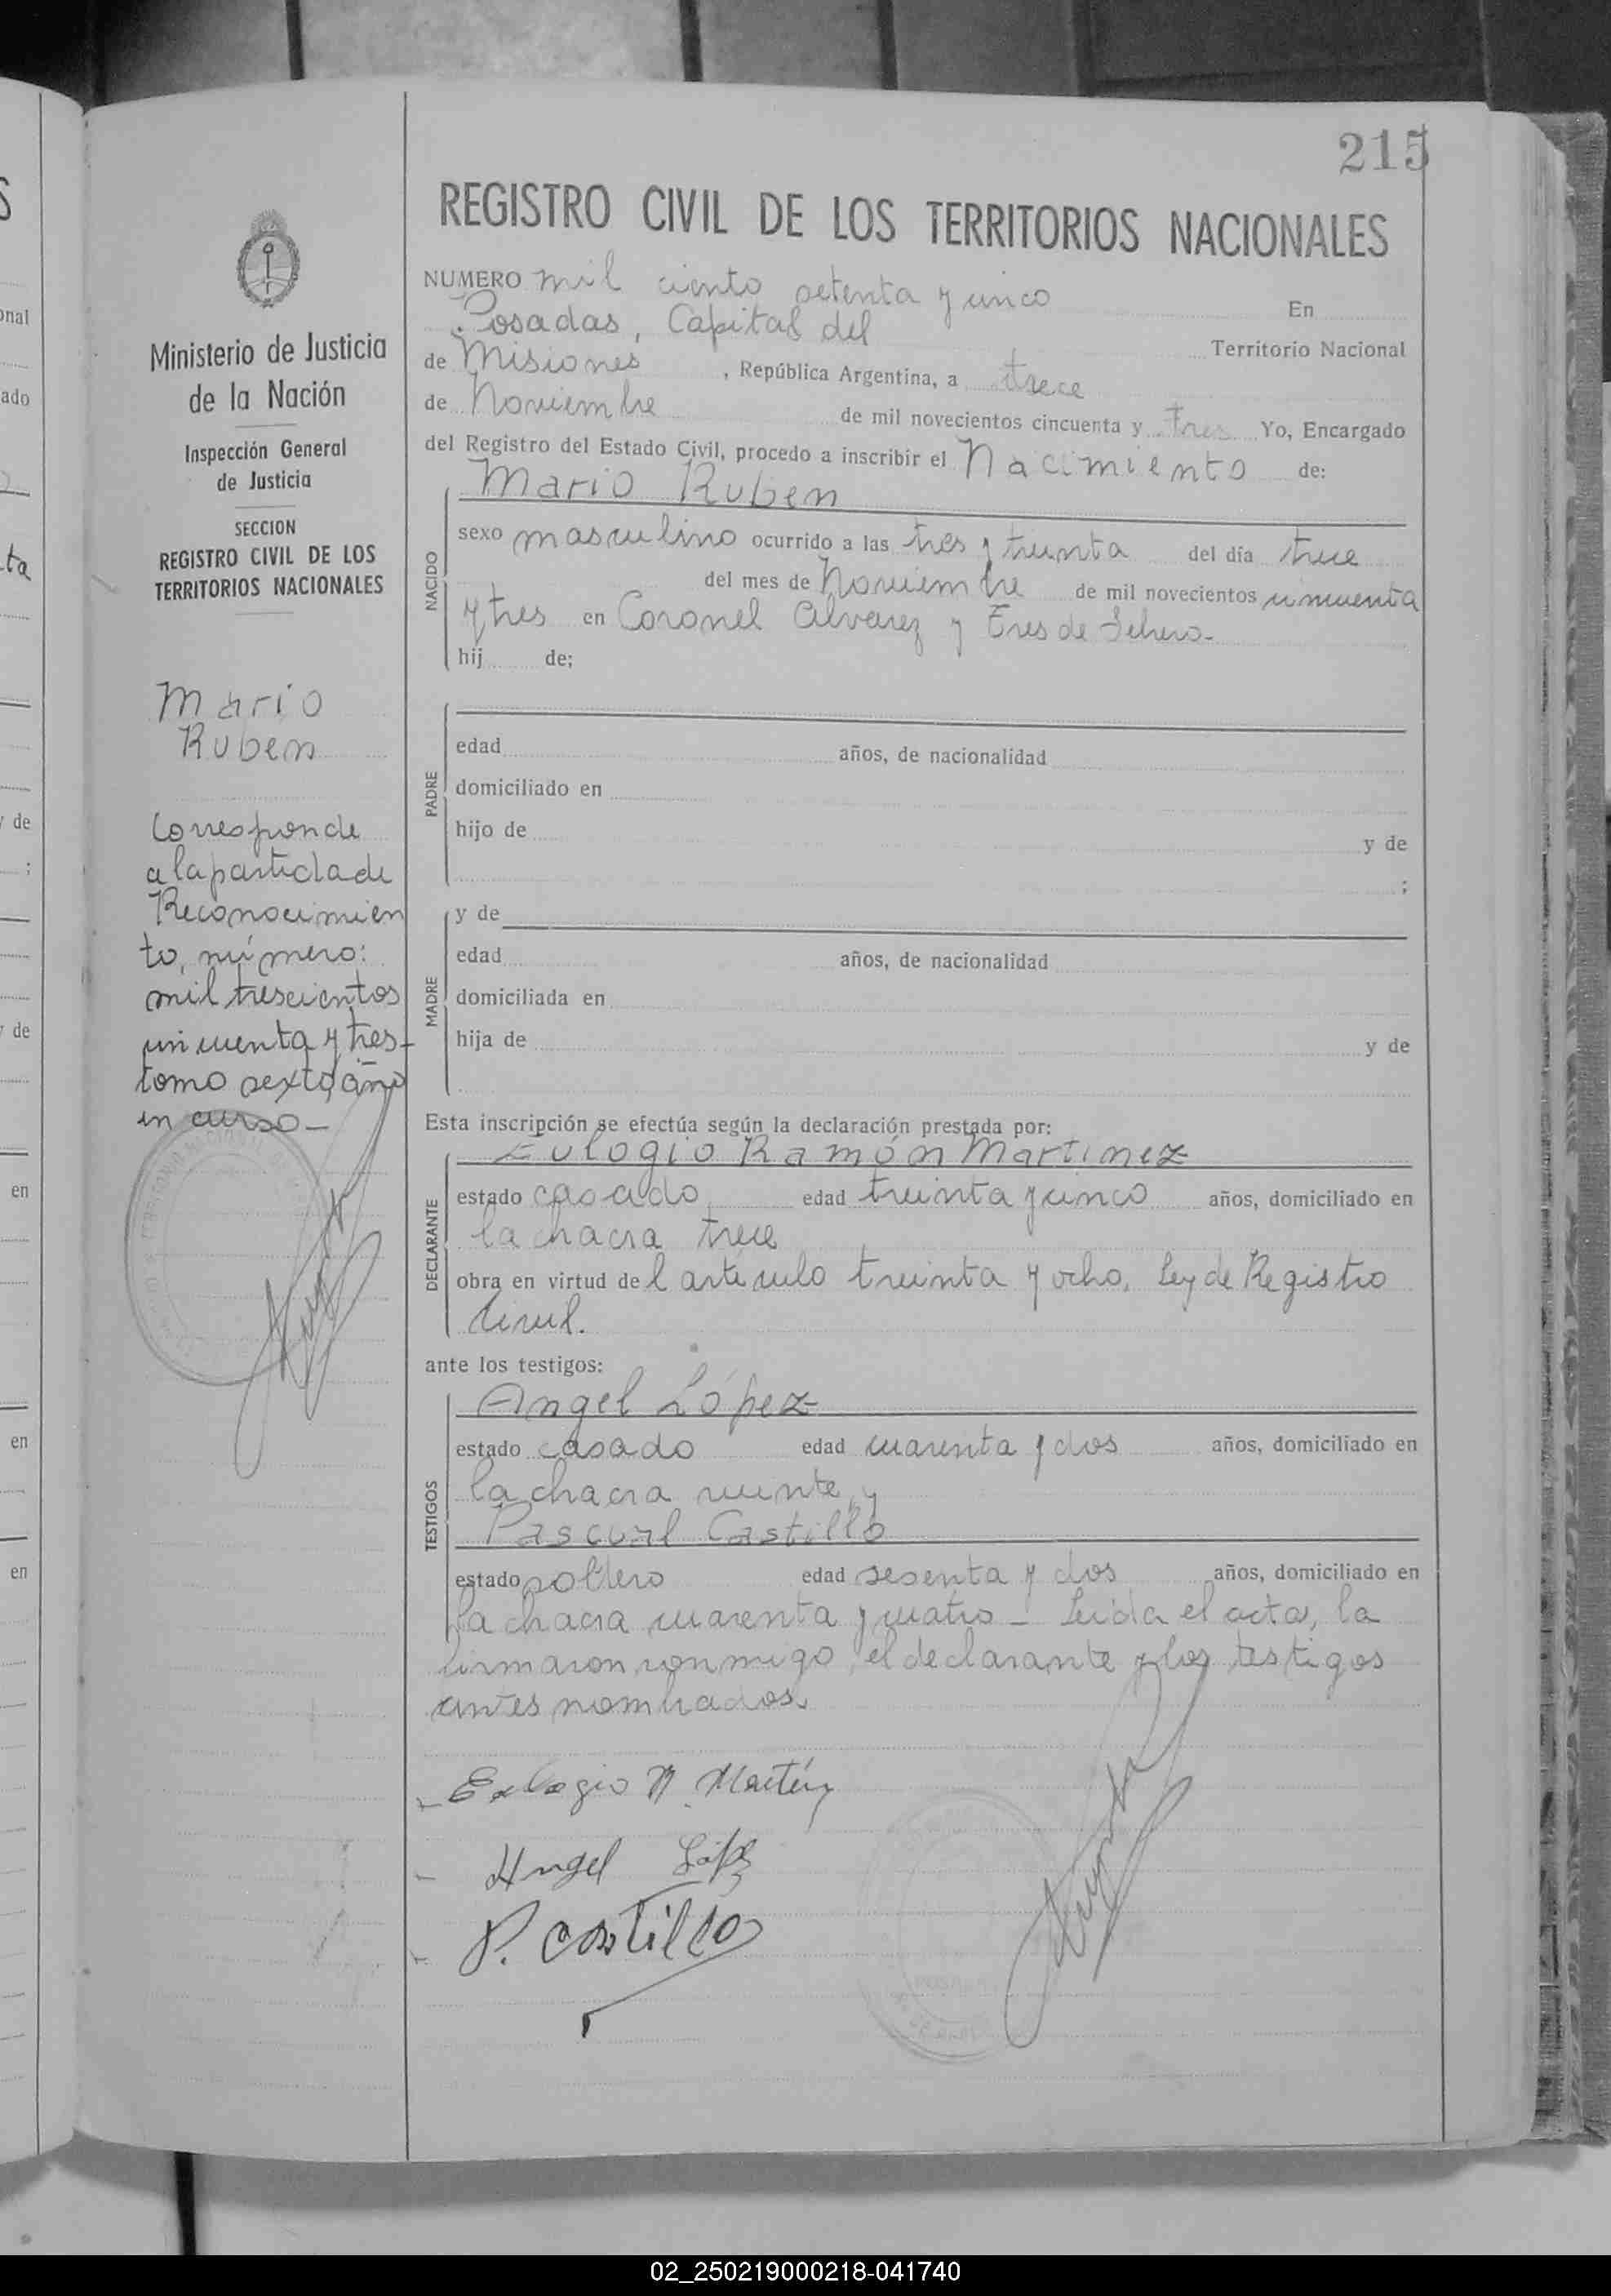 215
REGISTRO CIVIL DE LOS TERRITORIOS NACIONALES
Ministerio de Justicia
de la Nación
Inspección General
de Justicia
SECCION
REGISTRO CIVIL DE LOS
TERRITORIOS NACIONALES
Mario
Ruben
Corresponde
a la partida de
Reconocimien
to, número:
mil trescientos
cincuenta y tres
tomo sexto, año
en curso_
NUMERO mil ciento setenta y cinco En
Posadas, Capital del Territorio Nacional
de Misiones, República Argentina, a trece
de Noviembre de mil novecientos cincuenta y tres Yo, Encargado
del Registro del Estado Civil, procedo a inscribir el Nacimiento de:
Mario Ruben
NACIDO
sexo masculino ocurrido a las tres y treinta del día trece
del mes de Noviembre de mil novecientos cincuenta
y tres en Coronel Alvarez y Tres de Febrero-
hij de;
PADRE
edad años, de nacionalidad
domiciliado en
hijo de y de
;
MADRE
y de
edad años, de nacionalidad
domiciliada en
hija de y de
Esta inscripción se efectúa según la declaración prestada por:
Eulogio Ramón Martinez
DECLARANTE
estado casado edad treinta y cinco años, domiciliado en
la chacra trece
obra en virtud del artículo treinta y ocho, Ley de Registro
Civil.
ante los testigos:
Angel López
TESTIGOS
estado casado edad cuarenta y dos años, domiciliado en
la chacra veinte, y
Pascual Castillo
estado soltero edad sesenta y dos años, domiciliado en
la chacra cuarenta y cuatro_ Leída el acta, la
firmaron conmigo, el declarante y los testigos
antes nombrados.
Eulogio R. Martínez
Angel López
P. Castillo
onal
ado
ta
y de
;
y de
en
en
en
02_250219000218-041740